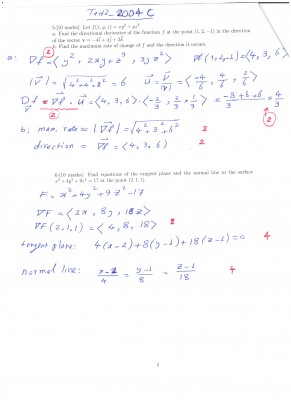 Test2_2004 C
5.[10 marks] Let f(x, y, z) = xy² + yz³
a. Find the directional derivative of the function f at the point (1, 2, −1) in the direction
of the vector v = −4i + 4j + 2k.
b. Find the maximum rate of change of f and the direction it occurs.
a: ∇f = ⟨y², 2xy+z³, 3yz²⟩ ∇f(1,2,-1) = ⟨4, 3, 6⟩
2
|V| = √(4²+4²+2²) = 6 u = V/|V| = ⟨-4/6, 4/6, 2/6⟩
D f = ∇f · u = ⟨4, 3, 6⟩ · ⟨-2/3, 2/3, 1/3⟩ = (-8+6+6)/3 = 4/3
2 2
b: max. rate = |∇f| = √(4²+3²+6²) 2
direction = ∇f = ⟨4, 3, 6⟩ 2
6.[10 marks]. Find equations of the tangent plane and the normal line to the surface
x² + 4y² + 9z² = 17 at the point (2, 1, 1).
F = x² + 4y² + 9z² - 17
∇F = ⟨2x, 8y, 18z⟩
∇F(2,1,1) = ⟨4, 8, 18⟩ 2
tangent plane: 4(x-2) + 8(y-1) + 18(z-1) = 0 4
normal line: (x-2)/4 = (y-1)/8 = (z-1)/18 4